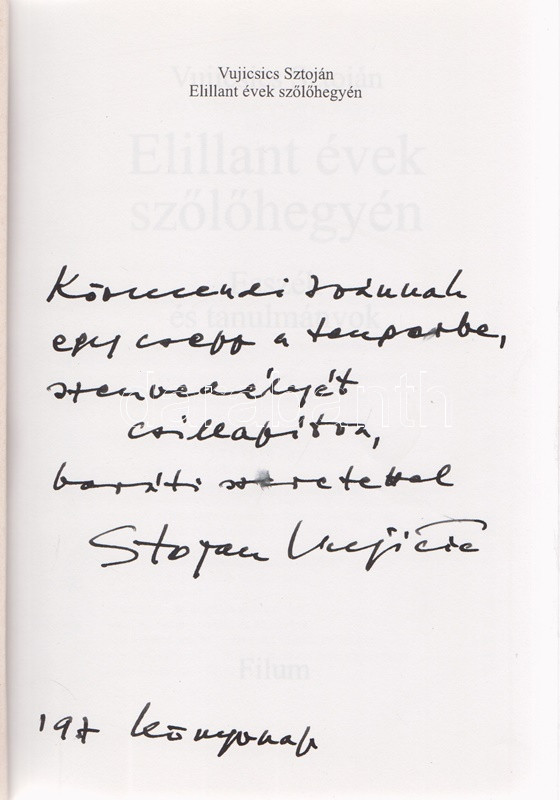 Vujicsics Sztoján
Elillant évek szőlőhegyén
Elillant évek
szőlőhegyén
és tanulmányok
Körmendi Ivánnak
egy csepp a tengerbe,
szenvedélyét
csillapítva,
baráti szeretettel
Stojan Vujičić
Filum
'97 könyvnap
darabanth